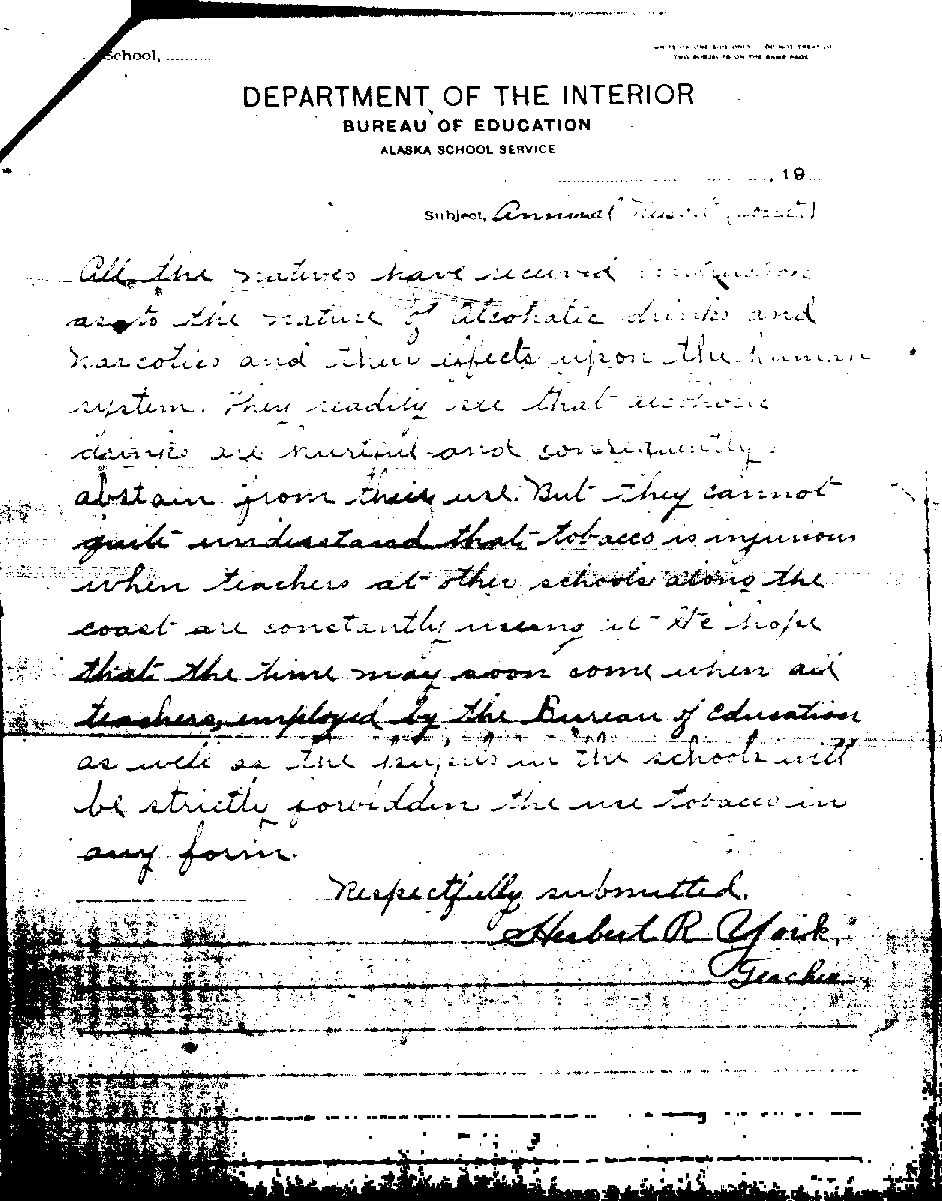 School, ..........
WRITE ON ONE SIDE ONLY. DO NOT TREAT OF
TWO SUBJECTS ON THE SAME PAGE.
DEPARTMENT OF THE INTERIOR
BUREAU OF EDUCATION
ALASKA SCHOOL SERVICE
, 19
Subject, Annual
All the natives have received instruction
as to the nature of Alcoholic drinks and
narcotics and their effects upon the human
system. They readily see that alcoholic
drinks are hurtful and consequently
abstain from their use. But they cannot
quite understand that tobacco is injurious
when teachers at other schools along the
coast are constantly using it. We hope
that the time may soon come when all
teachers, employed by the Bureau of Education
as well as the pupils in the schools will
be strictly forbidden the use tobacco in
any form.
Respectfully submitted.
Herbert R. York,
Teacher